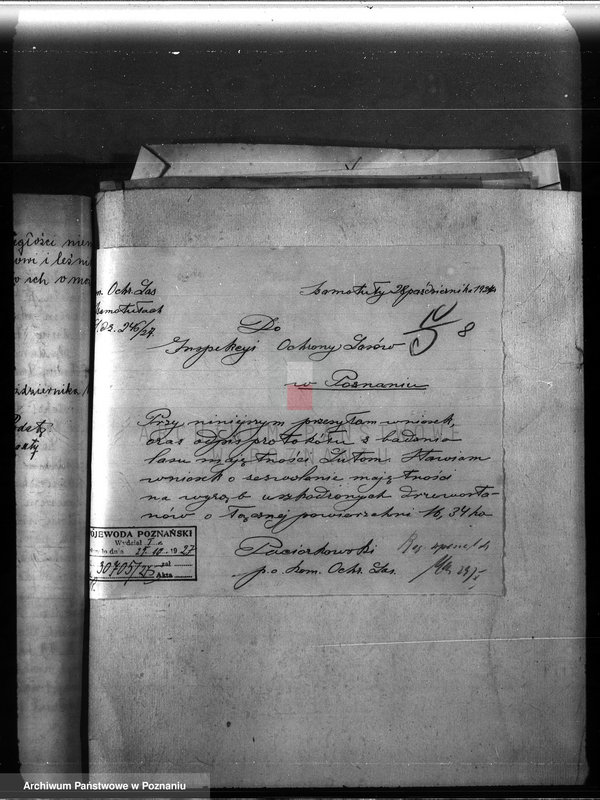 egłości
owi i leśni
o ich
ździernika
Ochr. Las
Szamotułach
L. dz. 246/27.
Szamotuły 28 października 1927
8
Do
Inspekcyi Ochrony Lasów
w Poznaniu
Przy niniejszym przesyłam wniosek,
oraz odpis protokółu z badania
lasu majętności Lutom. Stawiam
wniosek o zezwolenie majętności
na wyrąb uszkodzonych drzewosta-
nów o łącznej powierzchni 16,34 ha
Paciorkowski
p.o. kom. Ochr. Las.
WOJEWODA POZNAŃSKI
Wydział I
dnia 29.10 1927
30705/27 zał.
Akta
Archiwum Państwowe w Poznaniu